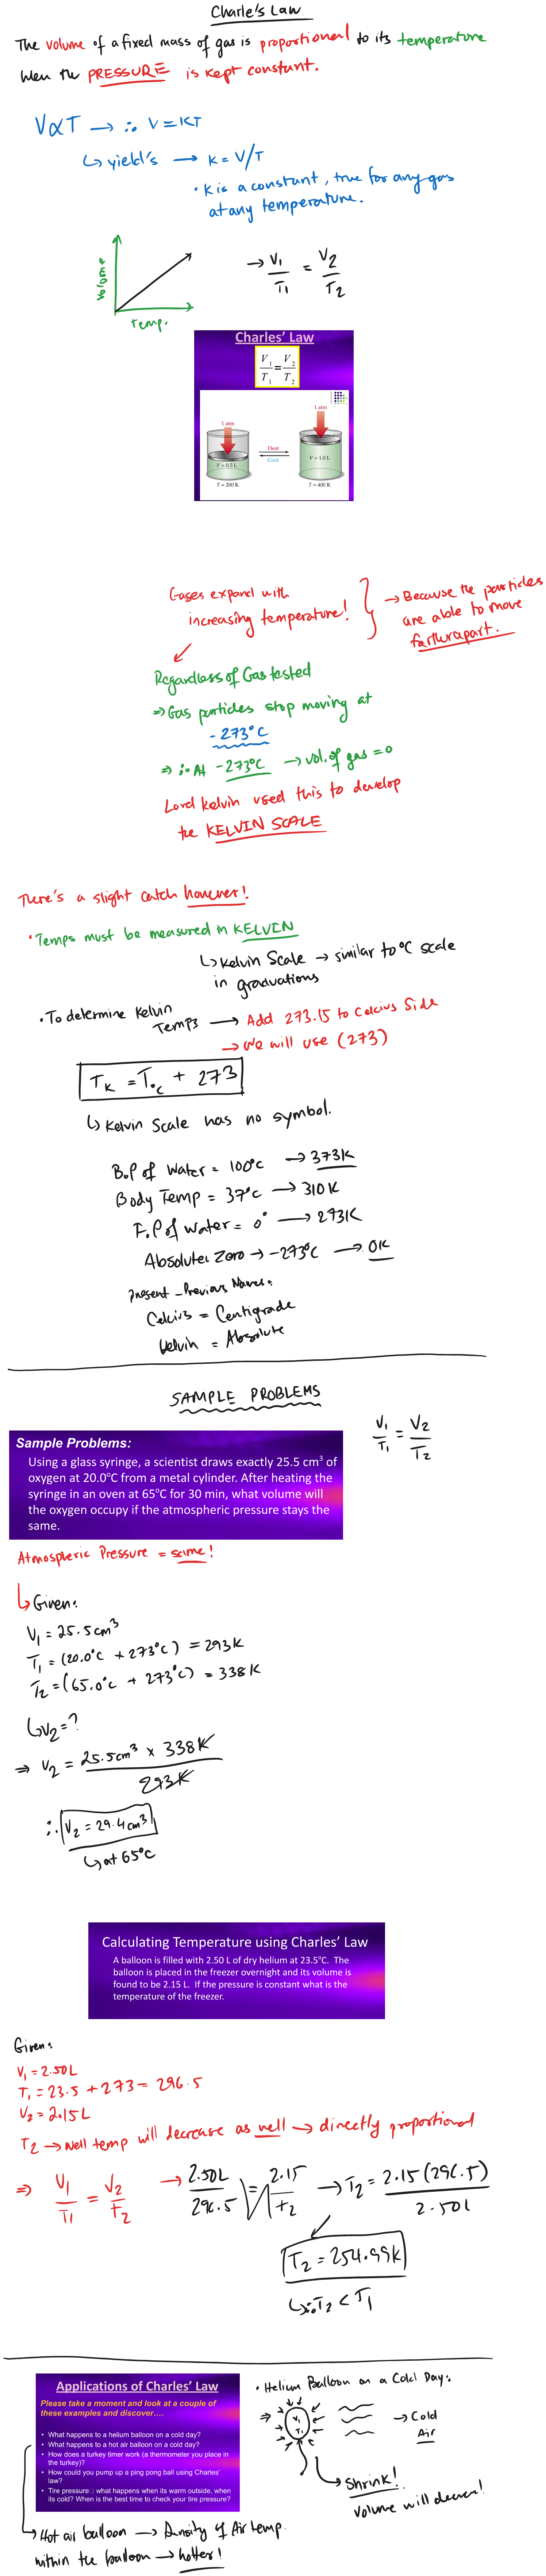 Charle's Law
The volume of a fixed mass of gas is proportional to its temperature
when the PRESSURE is kept constant.
V∝T → ∴ V = KT
↳ yield's → K = V/T
• K is a constant, true for any gas
at any temperature.
Volume
Temp.
→ V1/T1 = V2/T2
Charles' Law
V1/T1 = V2/T2
1 atm
1 atm
Heat
Cool
V = 0.5 L
V = 1.0 L
T = 200 K
T = 400 K
Gases expand with
increasing temperature!
→ Because the particles
are able to move
farther apart.
Regardless of Gas tested
⇒ Gas particles stop moving at
-273°C
⇒ ∴ At -273°C → vol. of gas = 0
Lord Kelvin used this to develop
the KELVIN SCALE
There's a slight catch however!
• Temps must be measured in KELVIN
↳ Kelvin Scale → similar to °C scale
in graduations
• To determine Kelvin
Temps → Add 273.15 to Celcius Side
→ We will use (273)
TK = T°C + 273
↳ Kelvin Scale has no symbol.
B.P of Water = 100°C → 373K
Body Temp = 37°C → 310K
F.P of Water = 0° → 273K
Absolute Zero → -273°C → 0K
Present - Previous Names:
Celcius = Centigrade
Kelvin = Absolute
SAMPLE PROBLEMS
V1/T1 = V2/T2
Sample Problems:
Using a glass syringe, a scientist draws exactly 25.5 cm³ of
oxygen at 20.0°C from a metal cylinder. After heating the
syringe in an oven at 65°C for 30 min, what volume will
the oxygen occupy if the atmospheric pressure stays the
same.
Atmospheric Pressure = same!
↳ Given:
V1 = 25.5cm³
T1 = (20.0°C + 273°C) = 293K
T2 = (65.0°C + 273°C) = 338K
↳ V2 = ?
⇒ V2 = 25.5cm³ × 338K
293K
∴ V2 = 29.4cm³
↳ at 65°C
Calculating Temperature using Charles' Law
A balloon is filled with 2.50 L of dry helium at 23.5°C. The
balloon is placed in the freezer overnight and its volume is
found to be 2.15 L. If the pressure is constant what is the
temperature of the freezer.
Given:
V1 = 2.50L
T1 = 23.5 + 273 = 296.5
V2 = 2.15L
T2 → Well temp will decrease as well → directly proportional
⇒ V1/T1 = V2/T2 → 2.50L/296.5 = 2.15/T2 → T2 = 2.15(296.5)
2.50L
T2 = 254.99K
↳ ∴ T2 < T1
Applications of Charles' Law
Please take a moment and look at a couple of
these examples and discover….
• What happens to a helium balloon on a cold day?
• What happens to a hot air balloon on a cold day?
• How does a turkey timer work (a thermometer you place in
the turkey)?
• How could you pump up a ping pong ball using Charles'
law?
• Tire pressure□ what happens when its warm outside, when
its cold? When is the best time to check your tire pressure?
• Helium Balloon on a Cold Day:
⇒ V1
T1
→ Cold
Air
→ Shrink!
Volume will decrease!
→ Hot air balloon → Density of Air temp.
within the balloon → hotter!